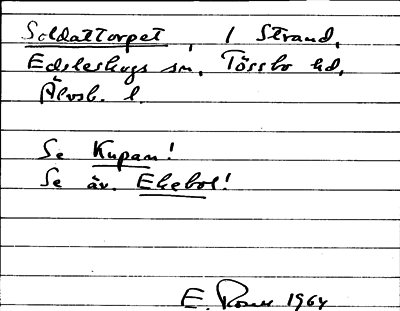 Soldattorpet, 1 Strand,
Edsleskogs sn, Tössbo hd,
Älvsb. l.
Se Kupan!
Se äv. Ekebol!
E. 1964